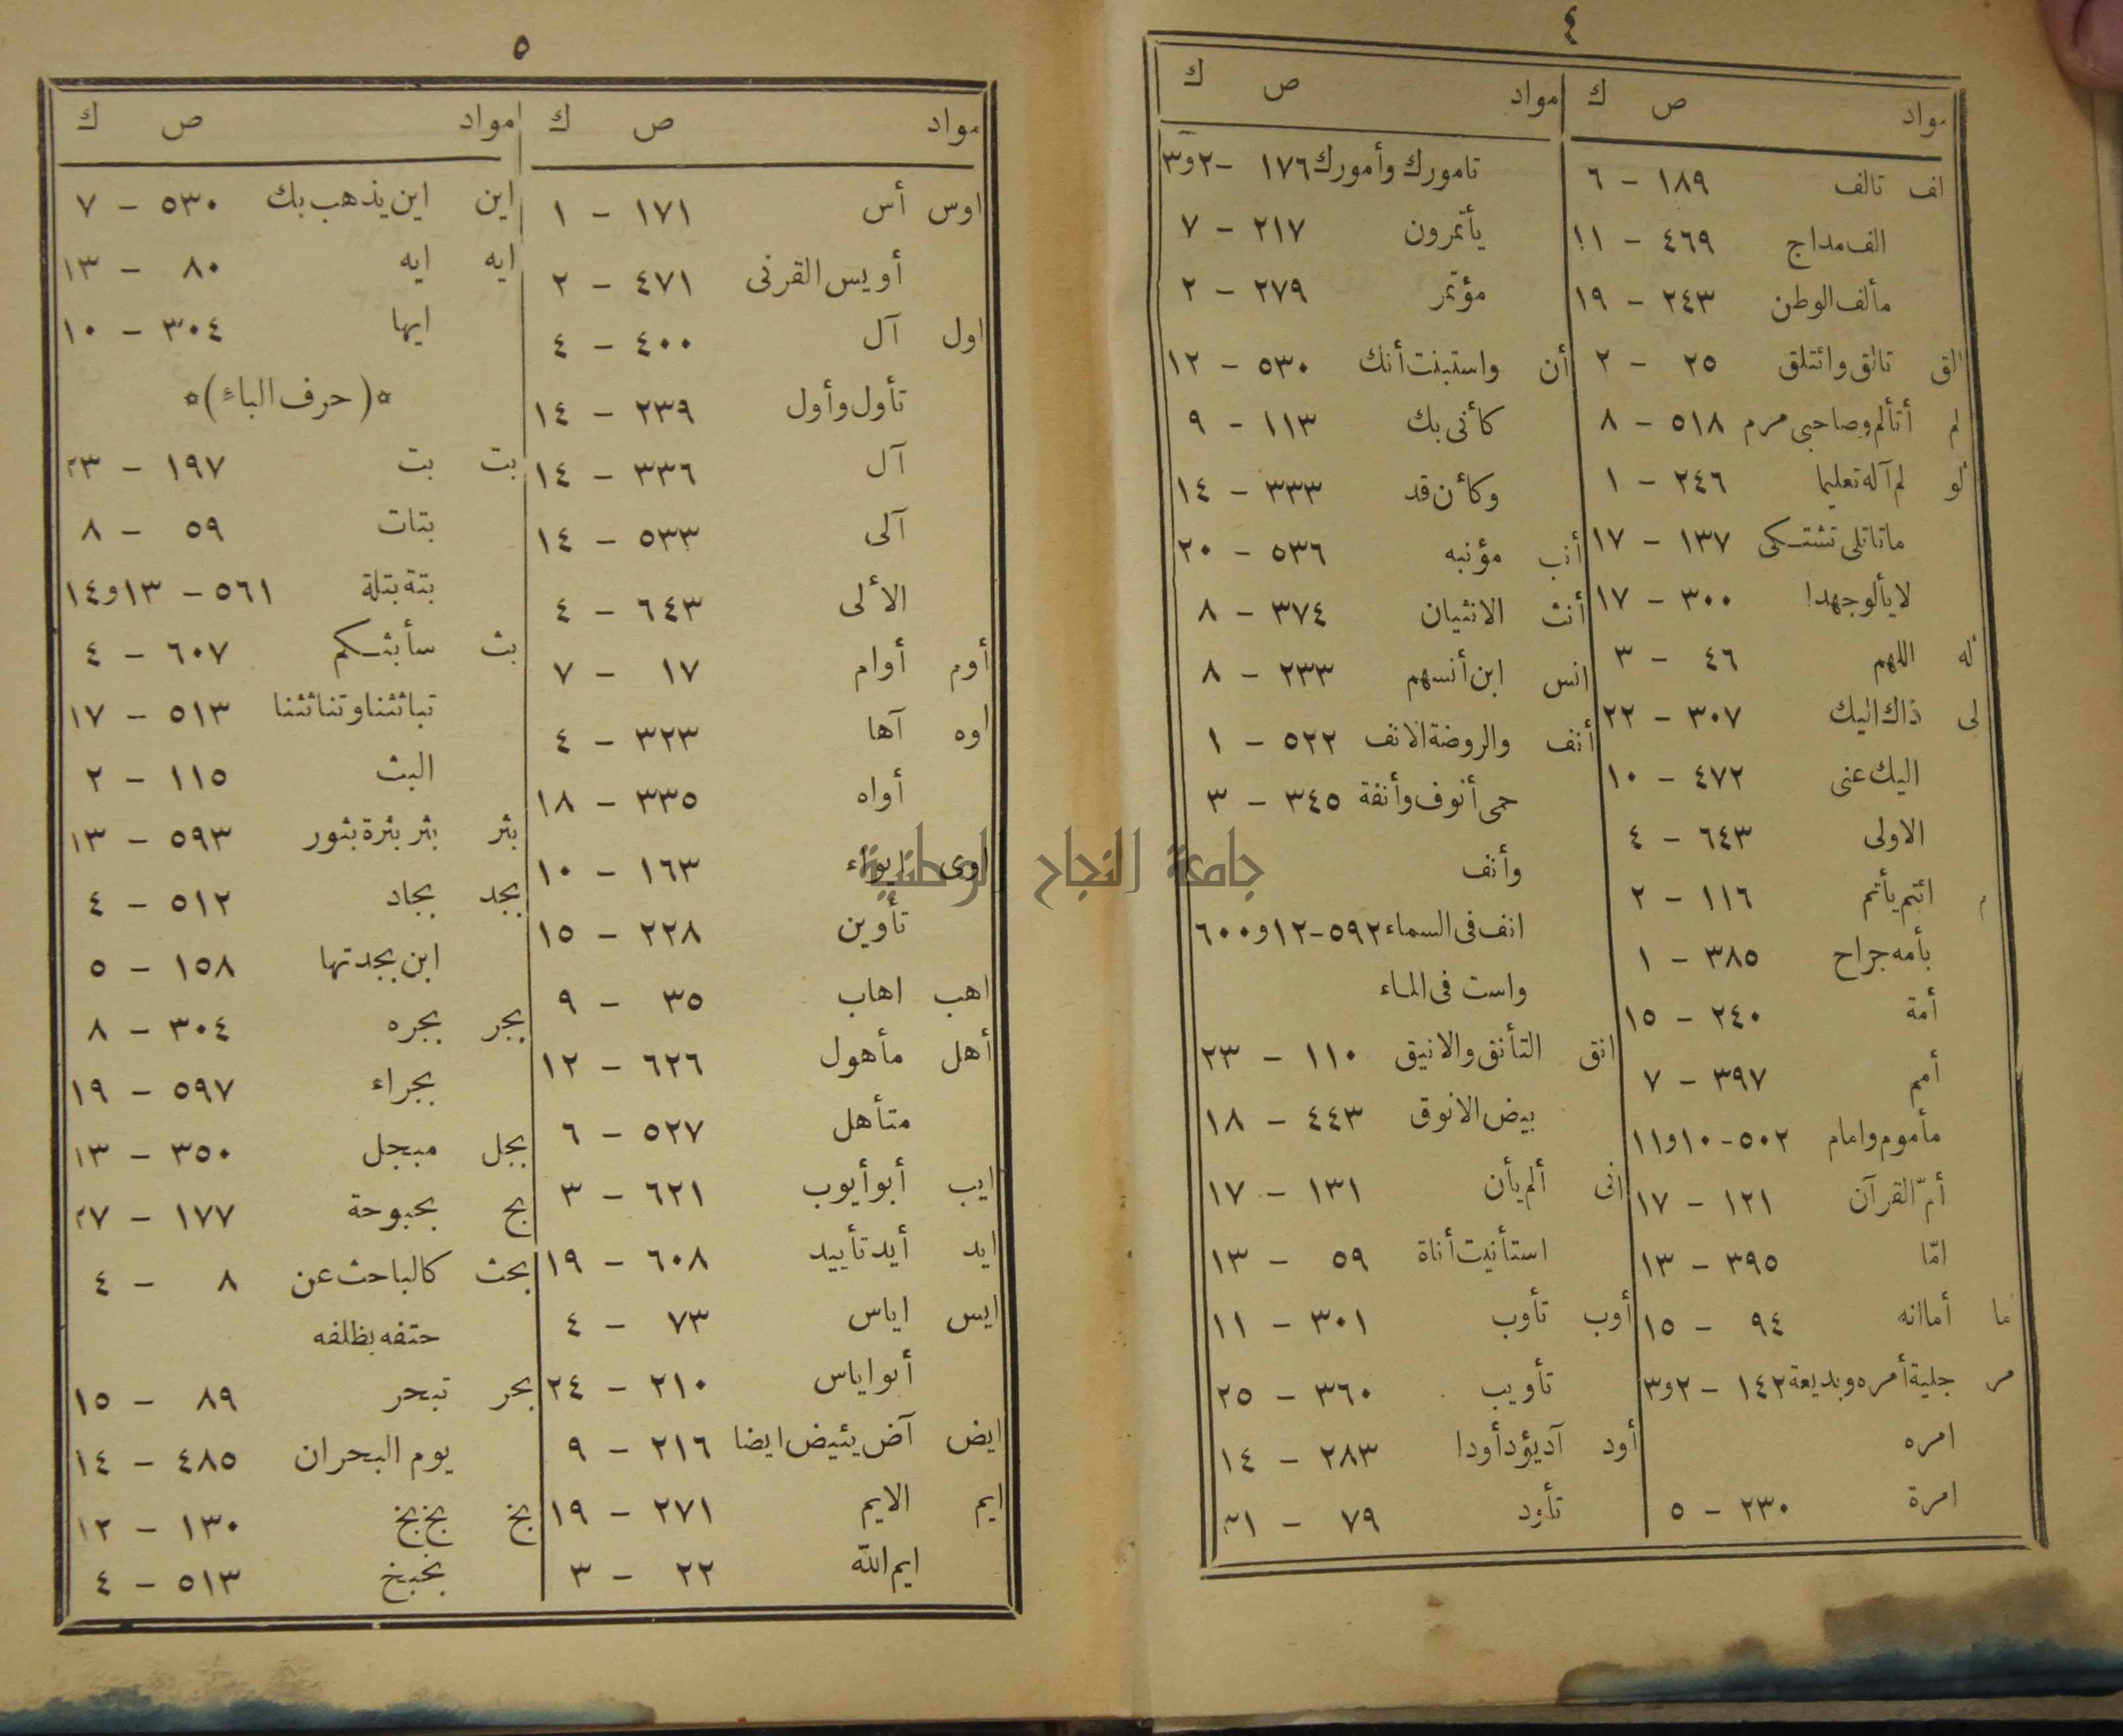 ٤
مواد ص ك
الف تالف ١٨٩ - ٦
الف مداج ٤٦٩ - ١١
مألف الوطن ٢٤٣ - ١٩
الق تالق وائتلق ٢٥ - ٢
لم أتألم وصاحبى مرم ٥١٨ - ٨
لو لم آله تعليما ٢٤٦ - ١
ماتاتلى تشتكى ١٣٧ - ١٧
لا يألو جهدا ٣٠٠ - ١٧
له اللهم ٤٦ - ٣
لى ذاك اليك ٣٠٧ - ٢٢
اليك عنى ٤٧٢ - ١٠
الاولى ٦٤٣ - ٤
م ائتم يأتم ١١٦ - ٢
بأمه جراح ٣٨٥ - ١
أمة ٢٤٠ - ١٥
أمم ٣٩٧ - ٧
مأموم وامام ٥٠٢ - ١٠و١١
أمّ القرآن ١٢١ - ١٧
امّا ٣٩٥ - ١٣
ما أما انه ٩٤ - ١٥
مر جلية أمره وبديعة ١٤٢ - ٢و٣
امره
امرة ٢٣٠ - ٥
مواد ص ك
تامورك وأمورك ١٧٦ - ٢و٣
يأتمرون ٢١٧ - ٧
مؤتمر ٢٧٩ - ٢
أن واستبنت أنك ٥٣٠ - ١٢
كأنى بك ١١٣ - ٩
وكأن قد ٣٣٣ - ١٤
أنب مؤنبه ٥٣٦ - ٢٠
أنث الانثيان ٣٧٤ - ٨
انس ابن أنسهم ٢٣٣ - ٨
أنف والروضة الانف ٥٢٢ - ١
حمى أنوف وأنفة ٣٤٥ - ٣
وأنف
انف فى السماء ٥٩٢ - ١٢و٦٠٠
واست فى الماء
انق التأنق والانيق ١١٠ - ٢٣
بيض الانوق ٤٤٣ - ١٨
انى ألم يأن ١٣١ - ١٧
استأنيت أناة ٥٩ - ١٣
أوب تأوب ٣٠١ - ١١
تأويب ٣٦٠ - ٢٥
أود آد يؤد أودا ٢٨٣ - ١٤
تأود ٧٩ -
٥
مواد ص ك
اوس أس ١٧١ - ١
أويس القرنى ٤٧١ - ٢
اول آل ٤٠٠ - ٤
تأول وأول ٢٣٩ - ١٤
آل ٣٣٦ - ١٤
آلى ٥٣٣ - ١٤
الألى ٦٤٣ - ٤
أوم أوام ١٧ - ٧
اوه آها ٣٢٣ - ٤
أواه ٣٣٥ - ١٨
اوى ايواء ١٦٣ - ١٠
تأوين ٢٢٨ - ١٥
اهب اهاب ٣٥ - ٩
أهل مأهول ٦٢٦ - ١٢
متأهل ٥٢٧ - ٦
ايب أبو أيوب ٦٢١ - ٣
ايد أيد تأييد ٦٠٨ - ١٩
ايس اياس ٧٣ - ٤
أبو اياس ٢١٠ - ٢٤
ايض آض يئيض ايضا ٢١٦ - ٩
ايم الايم ٢٧١ - ١٩
ايم الله ٢٢ - ٣
مواد ص ك
اين اين يذهب بك ٥٣٠ - ٧
ايه ايه ٨٠ - ١٣
ايها ٣٠٤ - ١٠
*(حرف الباء)*
بت بت ١٩٧ - ٢٣
بتات ٥٩ - ٨
بتة بتلة ٥٦١ - ١٣و١٤
بث سأبثكم ٦٠٧ - ٤
تباثثنا وتناثثنا ٥١٣ - ١٧
البث ١١٥ - ٢
بثر بثر بثرة بثور ٥٩٣ - ١٣
بجد بجاد ٥١٢ - ٤
ابن بجدتها ١٥٨ - ٥
بجر بجره ٣٠٤ - ٨
بجراء ٥٩٧ - ١٩
بجل مبجل ٣٥٠ - ١٣
بح بحبوحة ١٧٧ - ٢٧
بحث كالباحث عن ٨ - ٤
حتفه بظلفه
بحر تبحر ٨٩ - ١٥
يوم البحران ٤٨٥ - ١٤
بخ بخ بخ ١٣٠ - ١٢
بخبخ ٥١٣ - ٤
جامعة النجاح الوطنية